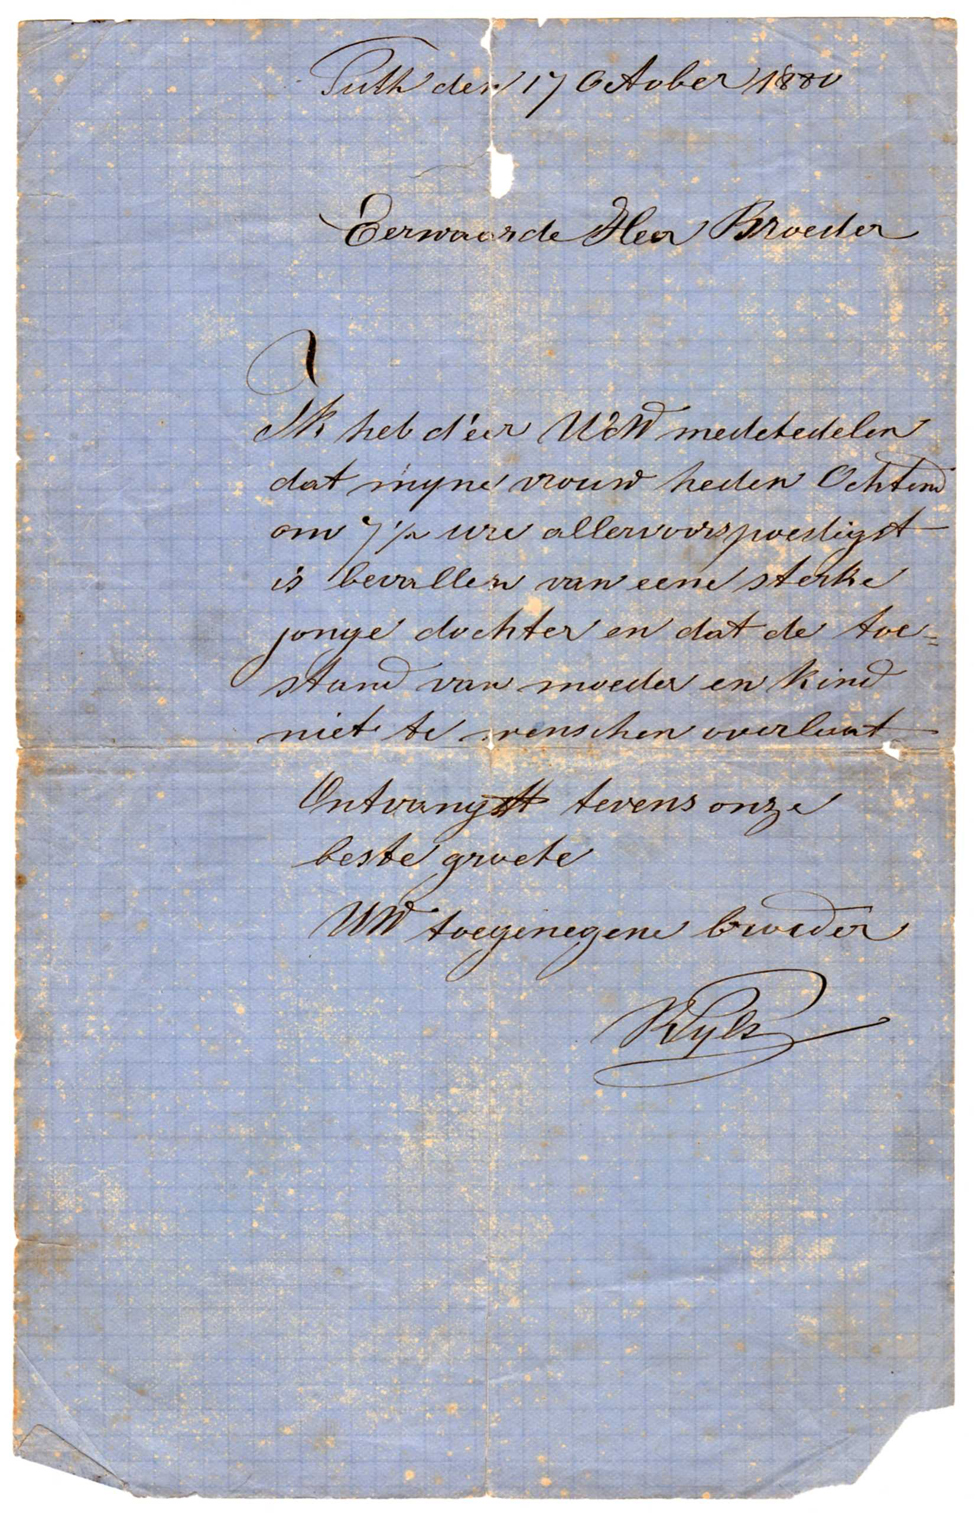 Puth den 17 October 1880
Eerwaarde Heer Broeder
Ik heb d'eer UEW medetedelen
dat myne vrouw heden Ochtend
om 7 1/2 ure allervoorspoedigst
is bevallen van eene sterke
jonge dochter en dat de toe=
stand van moeder en kind
niet te wenschen overlaat
Ontvangt tevens onze
beste groete
UW toegenegene broeder